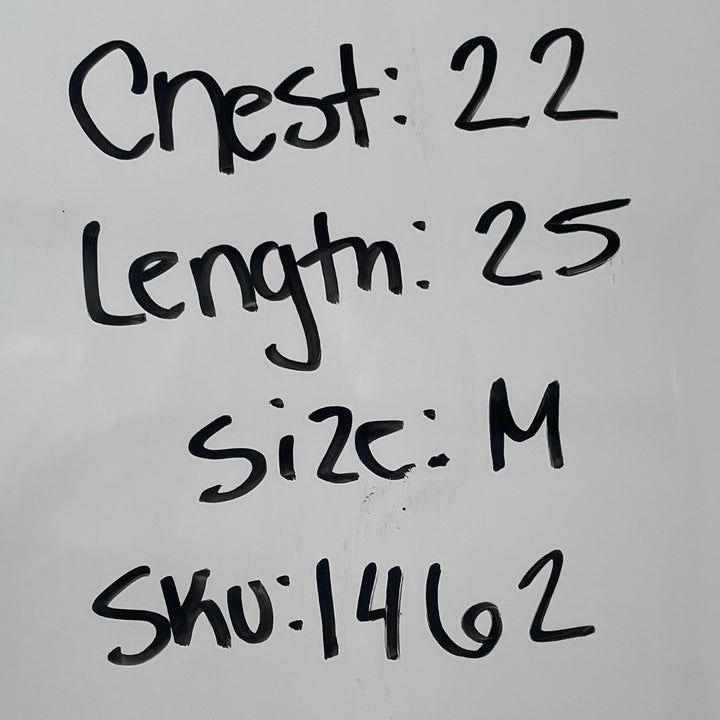 Chest: 22
Length: 25
Size: M
SKU: 1462